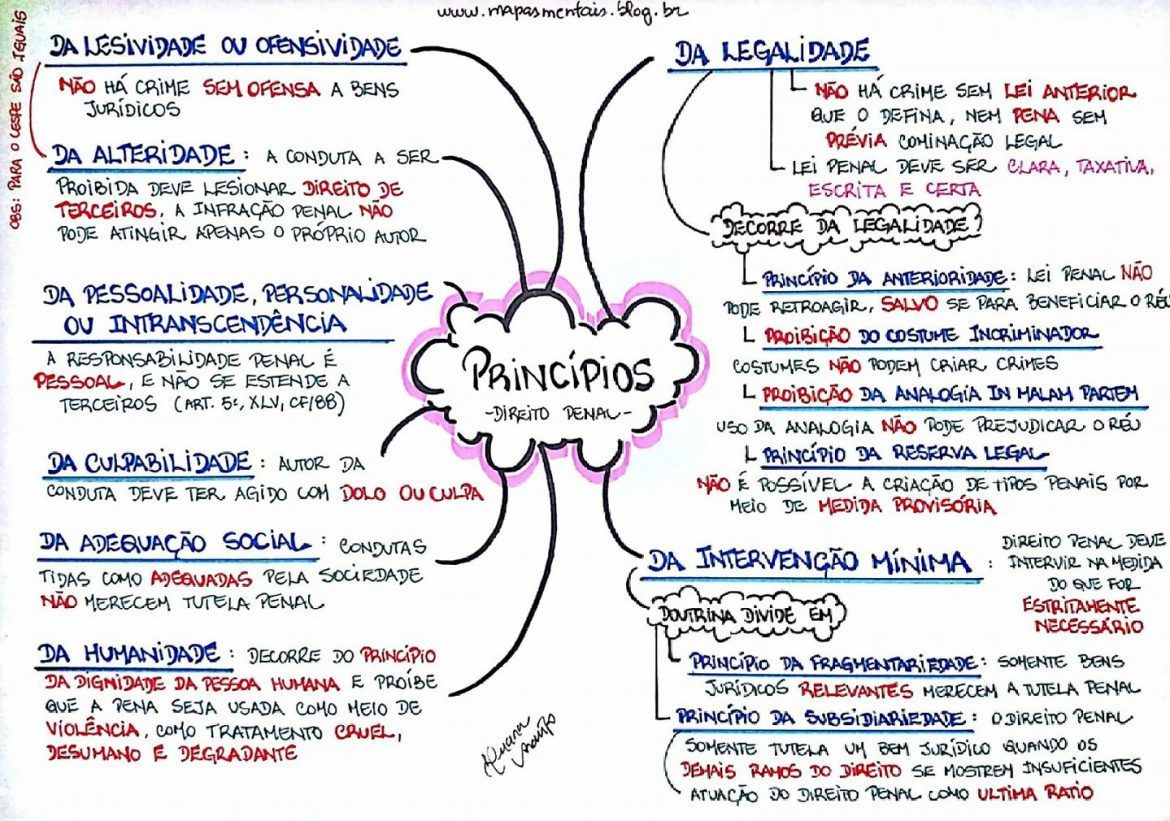 www.mapasmentais.blog.br
OBS: PARA O CESPE SÃO IGUAIS
DA LESIVIDADE OU OFENSIVIDADE
NÃO HÁ CRIME SEM OFENSA A BENS
JURÍDICOS
DA ALTERIDADE: A CONDUTA A SER
PROIBIDA DEVE LESIONAR DIREITO DE
TERCEIROS, A INFRAÇÃO PENAL NÃO
PODE ATINGIR APENAS O PRÓPRIO AUTOR
DA PESSOALIDADE, PERSONALIDADE
OU INTRANSCENDÊNCIA
A RESPONSABILIDADE PENAL É
PESSOAL, E NÃO SE ESTENDE A
TERCEIROS (ART. 5º, XLV, CF/88)
DA CULPABILIDADE: AUTOR DA
CONDUTA DEVE TER AGIDO COM DOLO OU CULPA
DA ADEQUAÇÃO SOCIAL: CONDUTAS
TIDAS COMO ADEQUADAS PELA SOCIEDADE
NÃO MERECEM TUTELA PENAL
DA HUMANIDADE: DECORRE DO PRINCÍPIO
DA DIGNIDADE DA PESSOA HUMANA E PROÍBE
QUE A PENA SEJA USADA COMO MEIO DE
VIOLÊNCIA, COMO TRATAMENTO CRUEL,
DESUMANO E DEGRADANTE
PRINCÍPIOS
- DIREITO PENAL -
DA LEGALIDADE
NÃO HÁ CRIME SEM LEI ANTERIOR
QUE O DEFINA, NEM PENA SEM
PRÉVIA COMINAÇÃO LEGAL
LEI PENAL DEVE SER CLARA, TAXATIVA,
ESCRITA E CERTA
DECORRE DA LEGALIDADE:
PRINCÍPIO DA ANTERIORIDADE: LEI PENAL NÃO
PODE RETROAGIR, SALVO SE PARA BENEFICIAR O RÉU
PROIBIÇÃO DO COSTUME INCRIMINADOR
COSTUMES NÃO PODEM CRIAR CRIMES
PROIBIÇÃO DA ANALOGIA IN MALAM PARTEM
USO DA ANALOGIA NÃO PODE PREJUDICAR O RÉU
PRINCÍPIO DA RESERVA LEGAL
NÃO É POSSÍVEL A CRIAÇÃO DE TIPOS PENAIS POR
MEIO DE MEDIDA PROVISÓRIA
DA INTERVENÇÃO MÍNIMA: DIREITO PENAL DEVE
INTERVIR NA MEDIDA
DO QUE FOR
ESTRITAMENTE
NECESSÁRIO
DOUTRINA DIVIDE EM
PRINCÍPIO DA FRAGMENTARIEDADE: SOMENTE BENS
JURÍDICOS RELEVANTES MERECEM A TUTELA PENAL
PRINCÍPIO DA SUBSIDIARIEDADE: O DIREITO PENAL
SOMENTE TUTELA UM BEM JURÍDICO QUANDO OS
DEMAIS RAMOS DO DIREITO SE MOSTREM INSUFICIENTES
ATUAÇÃO DO DIREITO PENAL COMO ULTIMA RATIO